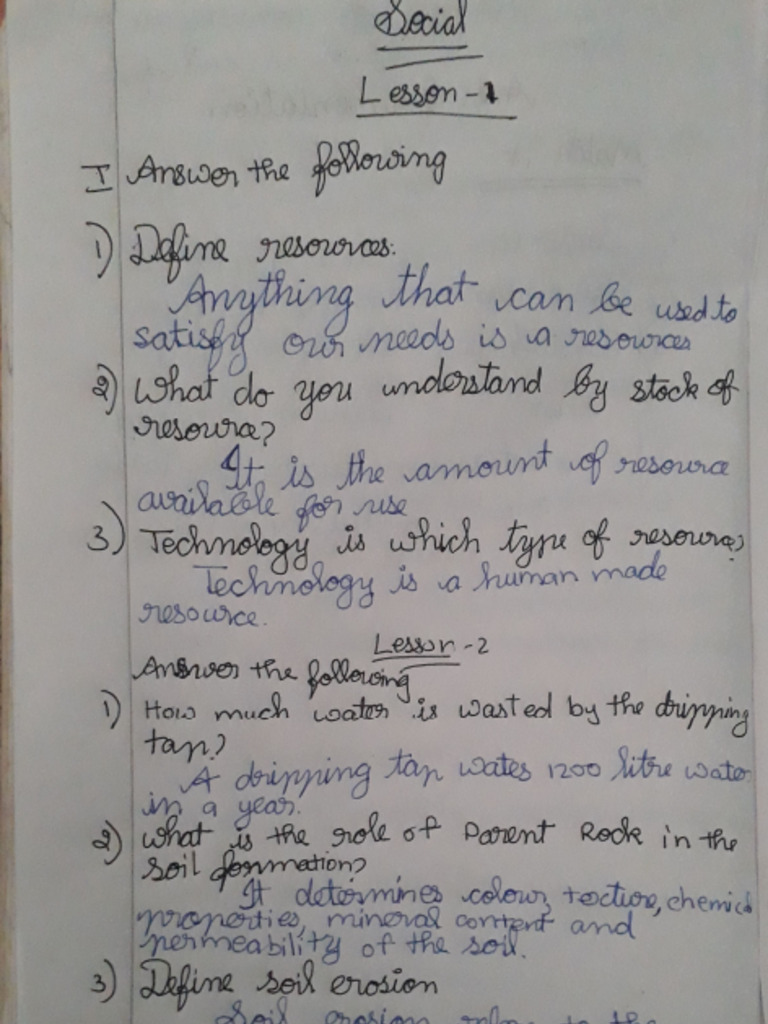 Social
Lesson - 1
I Answer the following
1) Define resources:
Anything that can be used to
satisfy our needs is a resources
2) What do you understand by stock of
resource?
It is the amount of resource
available for use
3) Technology is which type of resource?
Technology is a human made
resource.
Lesson - 2
Answer the following
1) How much water is wasted by the dripping
tap?
A dripping tap wates 1200 litre water
in a year.
2) What is the role of Parent Rock in the
soil formation?
It determines colour, texture, chemical
properties, mineral content and
permeability of the soil.
3) Define soil erosion
Soil erosion refers to the